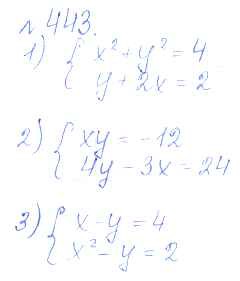 №443.
1) { x² + y² = 4
y + 2x = 2
2) { xy = -12
4y - 3x = 24
3) { x - y = 4
x² - y = 2